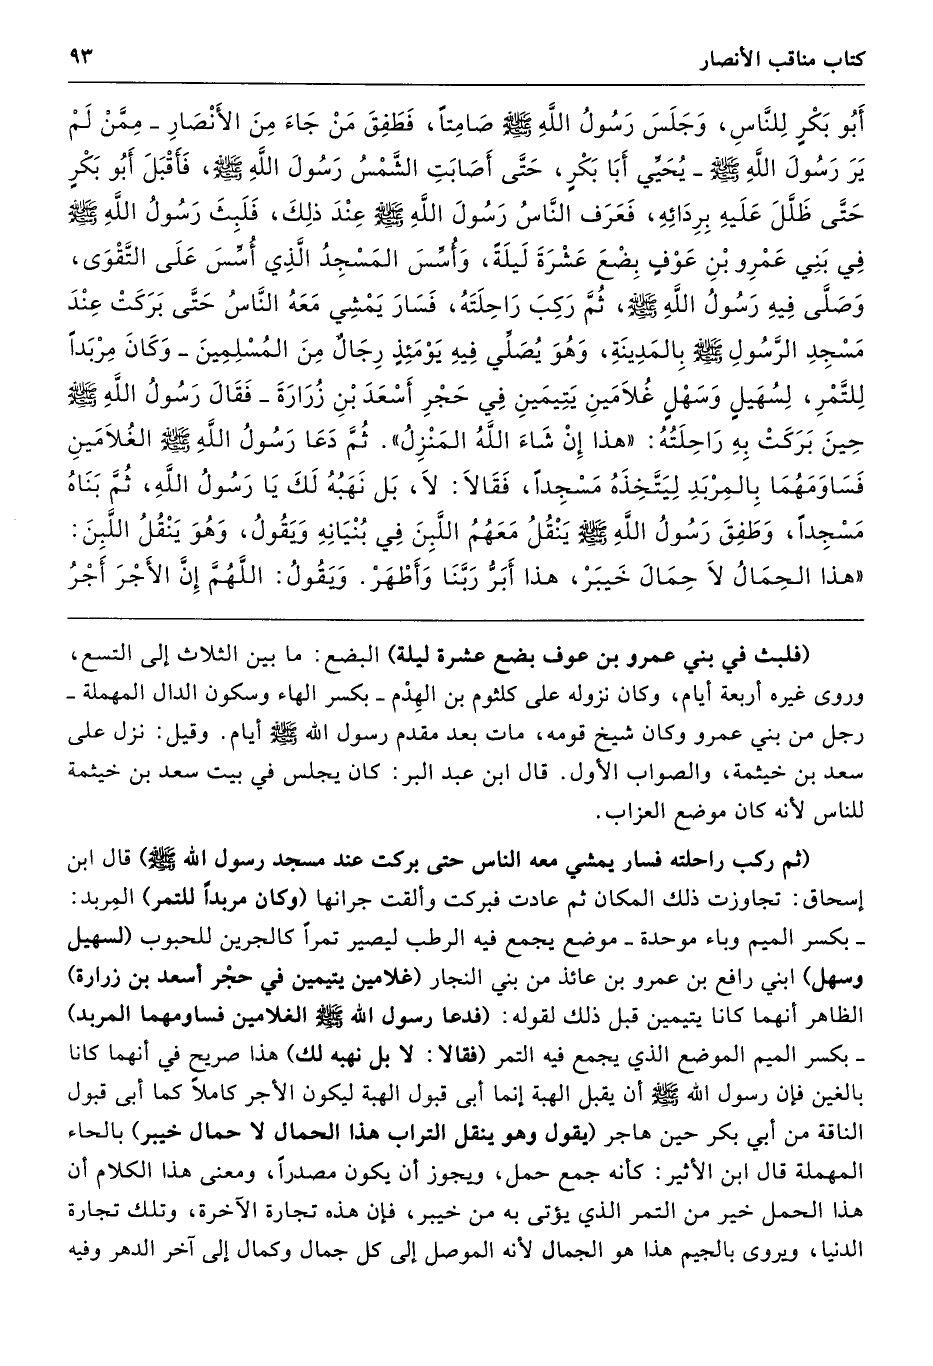 كتاب مناقب الأنصار ٩٣
أَبُو بَكْرٍ لِلنَّاسِ، وَجَلَسَ رَسُولُ اللَّهِ ﷺ صَامِتاً، فَطَفِقَ مَنْ جَاءَ مِنَ الأَنْصَارِ ـ مِمَّنْ لَمْ
يَرَ رَسُولَ اللَّهِ ﷺ ـ يُحَيِّي أَبَا بَكْرٍ، حَتَّى أَصَابَتِ الشَّمْسُ رَسُولَ اللَّهِ ﷺ، فَأَقْبَلَ أَبُو بَكْرٍ
حَتَّى ظَلَّلَ عَلَيهِ بِرِدَائِهِ، فَعَرَف النَّاسُ رَسُولَ اللَّهِ ﷺ عِنْدَ ذلِكَ، فَلَبِثَ رَسُولُ اللَّهِ ﷺ
فِي بَنِي عَمْرِو بْنِ عَوْفٍ بِضْعَ عَشْرَةَ لَيلَةً، وَأُسِّسَ المَسْجِدُ الَّذِي أُسِّسَ عَلَى التَّقْوَى،
وَصَلَّى فِيهِ رَسُولُ اللَّهِ ﷺ، ثُمَّ رَكِبَ رَاحِلَتَهُ، فَسَارَ يَمْشِي مَعَهُ النَّاسُ حَتَّى بَرَكَتْ عِنْدَ
مَسْجِدِ الرَّسُولِ ﷺ بِالمَدِينَةِ، وَهُوَ يُصَلِّي فِيهِ يَوْمَئِذٍ رِجَالٌ مِنَ المُسْلِمِينَ ـ وَكَانَ مِرْبَداً
لِلتَّمْرِ، لِسُهَيلٍ وَسَهْلٍ غُلاَمَينِ يَتِيمَينِ فِي حَجْرِ أَسْعَدَ بْنِ زُرَارَةَ ـ فَقَالَ رَسُولُ اللَّهِ ﷺ
حِينَ بَرَكَتْ بِهِ رَاحِلَتُهُ: «هذا إِنْ شَاءَ اللَّهُ المَنْزِلُ». ثُمَّ دَعَا رَسُولُ اللَّهِ ﷺ الغُلاَمَينِ
فَسَاوَمَهُمَا بِالمِرْبَدِ لِيَتَّخِذَهُ مَسْجِداً، فَقَالاَ: لاَ، بَل نَهَبُهُ لَكَ يَا رَسُولَ اللَّهِ، ثُمَّ بَنَاهُ
مَسْجِداً، وَطَفِقَ رَسُولُ اللَّهِ ﷺ يَنْقُلُ مَعَهُمُ اللَّبِنَ فِي بُنْيَانِهِ وَيَقُولُ، وَهُوَ يَنْقُلُ اللَّبِنَ:
«هذا الحِمَالُ لاَ حِمَالَ خَيبَرْ، هذا أَبَرُّ رَبَّنَا وَأَطْهَرْ. وَيَقُولُ: اللَّهُمَّ إِنَّ الأَجْرَ أَجْرُ
(فلبث في بني عمرو بن عوف بضع عشرة ليلة) البضع: ما بين الثلاث إلى التسع،
وروى غيره أربعة أيام، وكان نزوله على كلثوم بن الهِدْم ـ بكسر الهاء وسكون الدال المهملة ـ
رجل من بني عمرو وكان شيخ قومه، مات بعد مقدم رسول الله ﷺ أيام. وقيل: نزل على
سعد بن خيثمة، والصواب الأول. قال ابن عبد البر: كان يجلس في بيت سعد بن خيثمة
للناس لأنه كان موضع العزاب.
(ثم ركب راحلته فسار يمشي معه الناس حتى بركت عند مسجد رسول الله ﷺ) قال ابن
إسحاق: تجاوزت ذلك المكان ثم عادت فبركت وألقت جرانها (وكان مربداً للتمر) المِربد:
ـ بكسر الميم وباء موحدة ـ موضع يجمع فيه الرطب ليصير تمراً كالجرين للحبوب (لسهيل
وسهل) ابني رافع بن عمرو بن عائذ من بني النجار (غلامين يتيمين في حجْر أسعد بن زرارة)
الظاهر أنهما كانا يتيمين قبل ذلك لقوله: (فدعا رسول الله ﷺ الغلامين فساومهما المربد)
ـ بكسر الميم الموضع الذي يجمع فيه التمر (فقالا: لا بل نهبه لك) هذا صريح في أنهما كانا
بالغين فإن رسول الله ﷺ أن يقبل الهبة إنما أبى قبول الهبة ليكون الأجر كاملاً كما أبى قبول
الناقة من أبي بكر حين هاجر (يقول وهو ينقل التراب هذا الحمال لا حمال خيبر) بالحاء
المهملة قال ابن الأثير: كأنه جمع حمل، ويجوز أن يكون مصدراً، ومعنى هذا الكلام أن
هذا الحمل خير من التمر الذي يؤتى به من خيبر، فإن هذه تجارة الآخرة، وتلك تجارة
الدنيا، ويروى بالجيم هذا هو الجمال لأنه الموصل إلى كل جمال وكمال إلى آخر الدهر وفيه